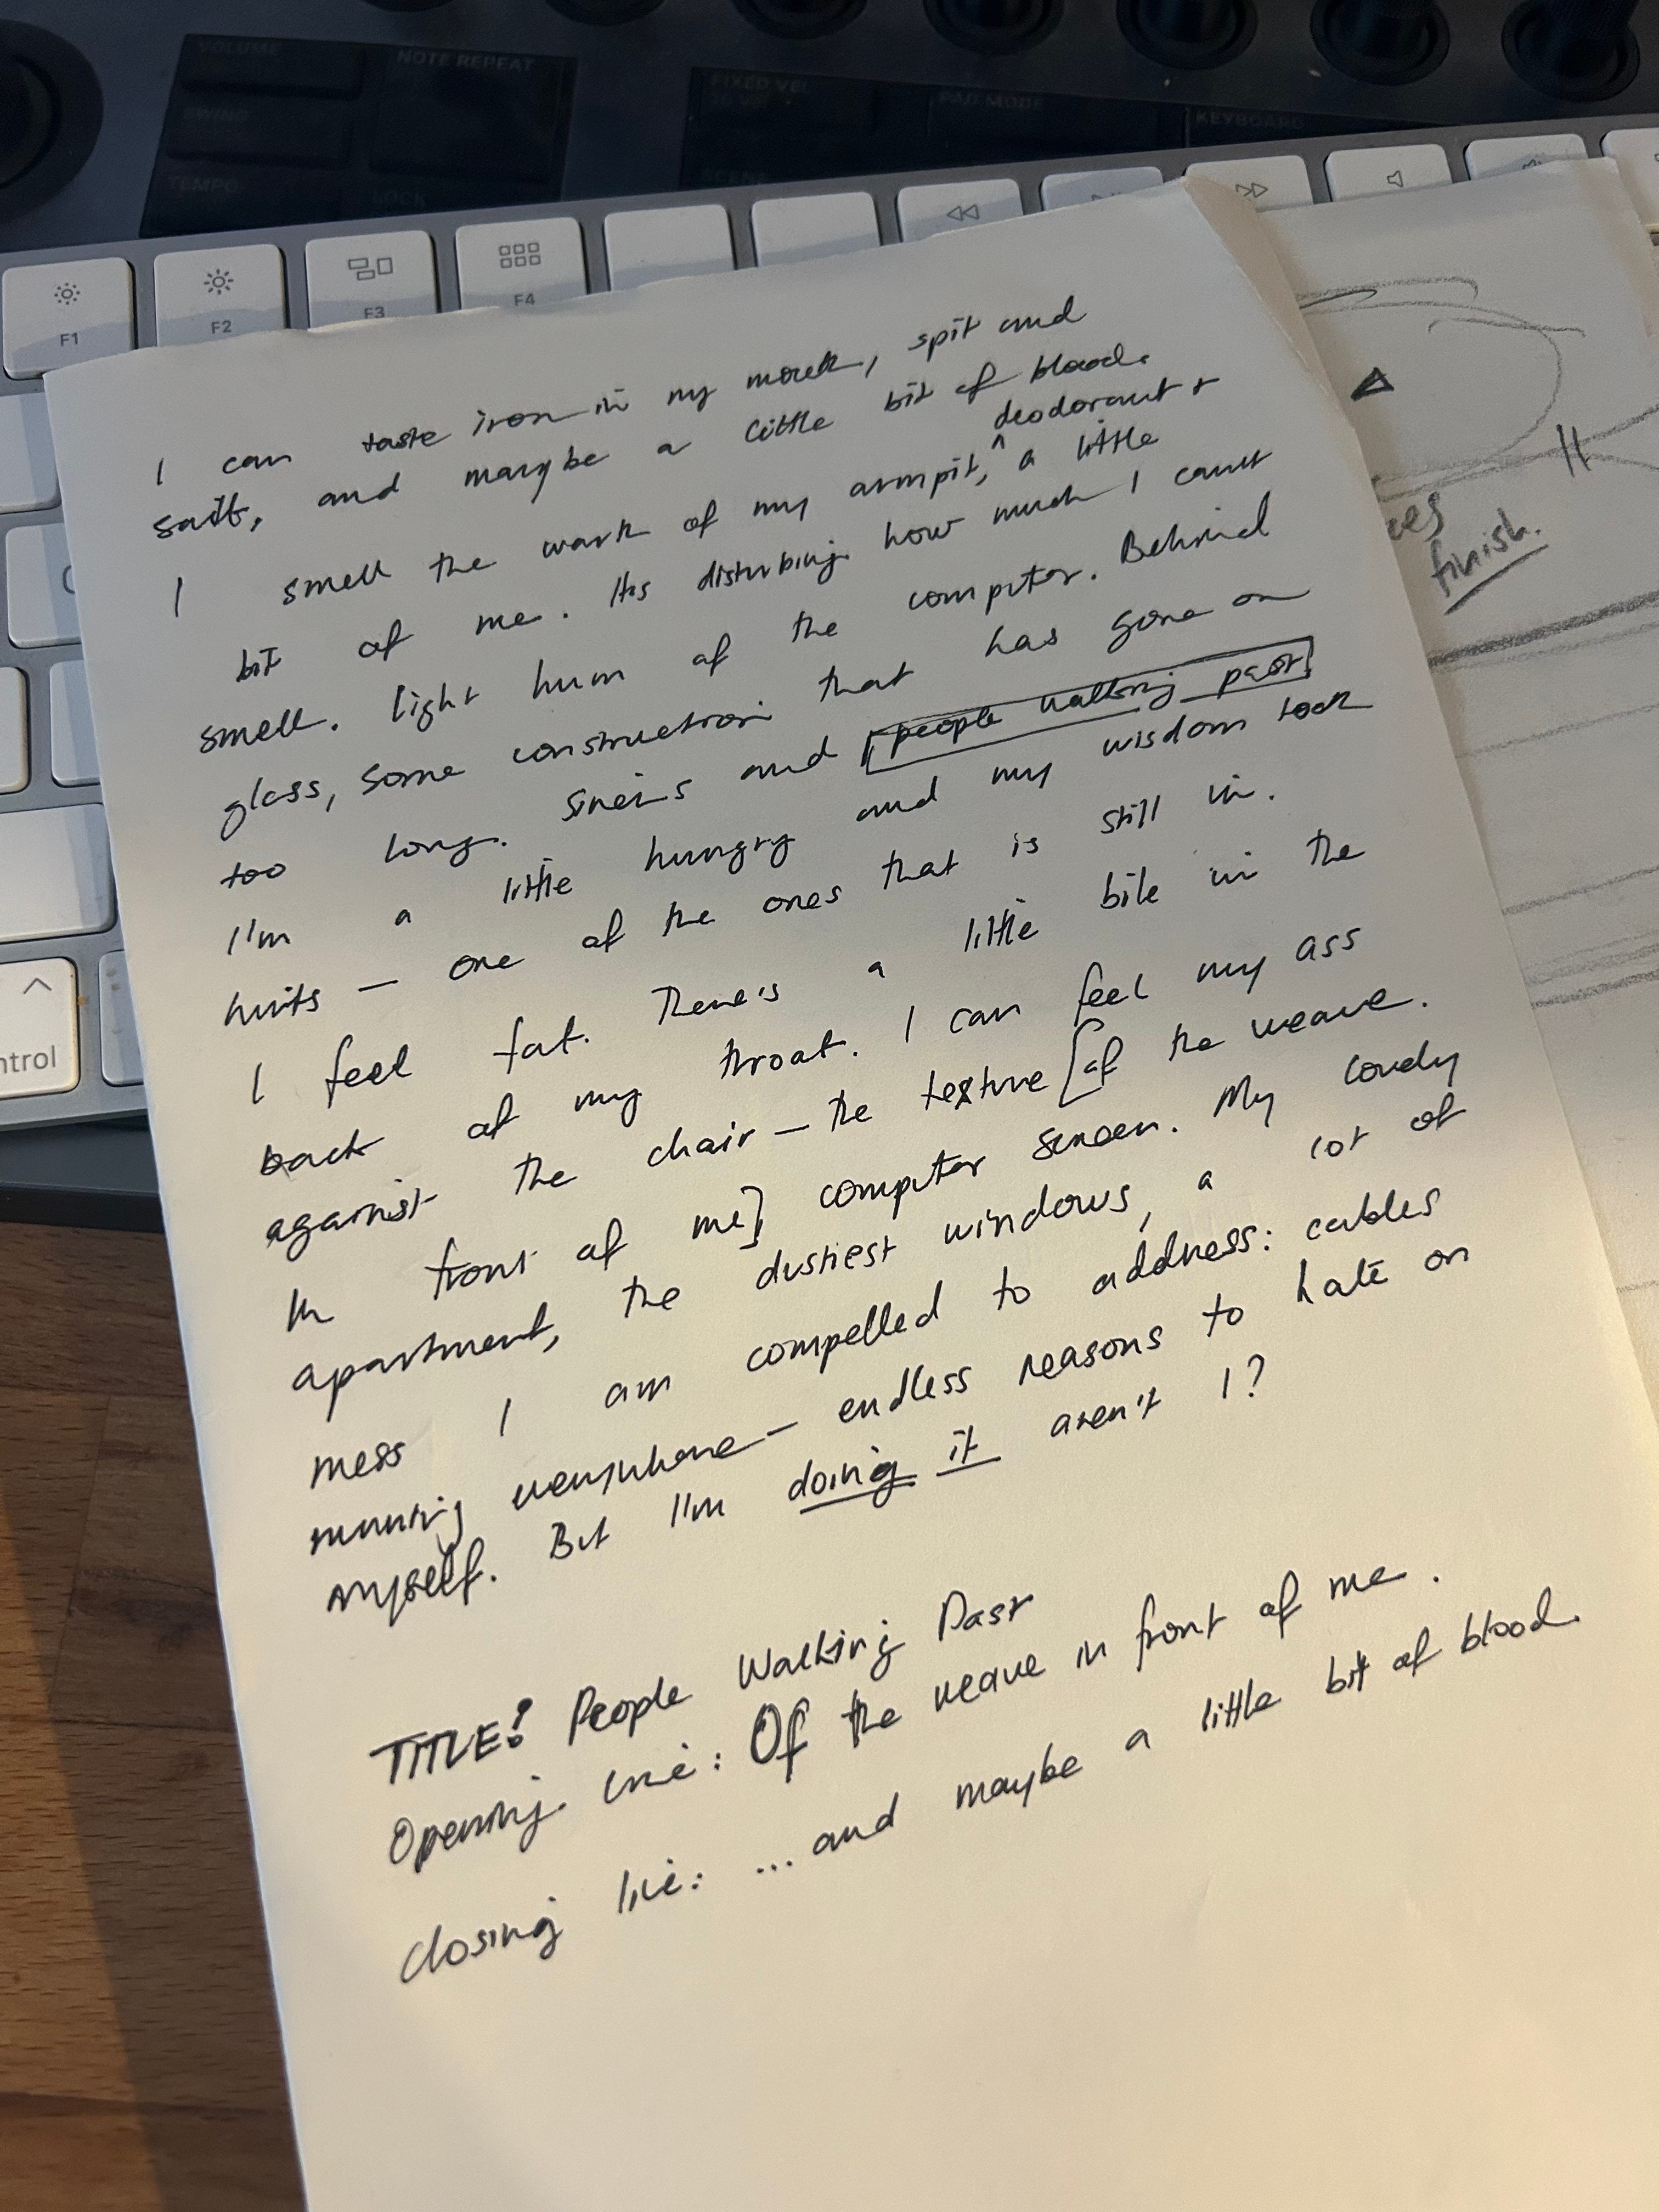 VOLUME
NOTE REPEAT
SWING
TEMPO
LOCK
FIXED VEL
PAD MODE
KEYBOARD
F1
F2
F3
F4
ntrol
finish.
I can taste iron in my mouth, spit and
salt, and maybe a little bit of blood.
deodorant +
I smell the work of my armpit, ^ a little
bit of me. Its disturbing how much I can't
smell. Light hum of the computer. Behind
glass, some construction that has gone on
too long. Sirens and [people walking past]
I'm a little hungry and my wisdom tooth
hurts — one of the ones that is still in.
I feel fat. There's a little bile in the
back of my throat. I can feel my ass
against the chair — the texture [of the weave.
In front of me] computer screen. My lovely
apartment, the dustiest windows, a lot of
mess I am compelled to address: cables
running everywhere — endless reasons to hate on
myself. But I'm doing it aren't I?
TITLE: People Walking Past
Opening line: Of the weave in front of me.
Closing line: ... and maybe a little bit of blood.